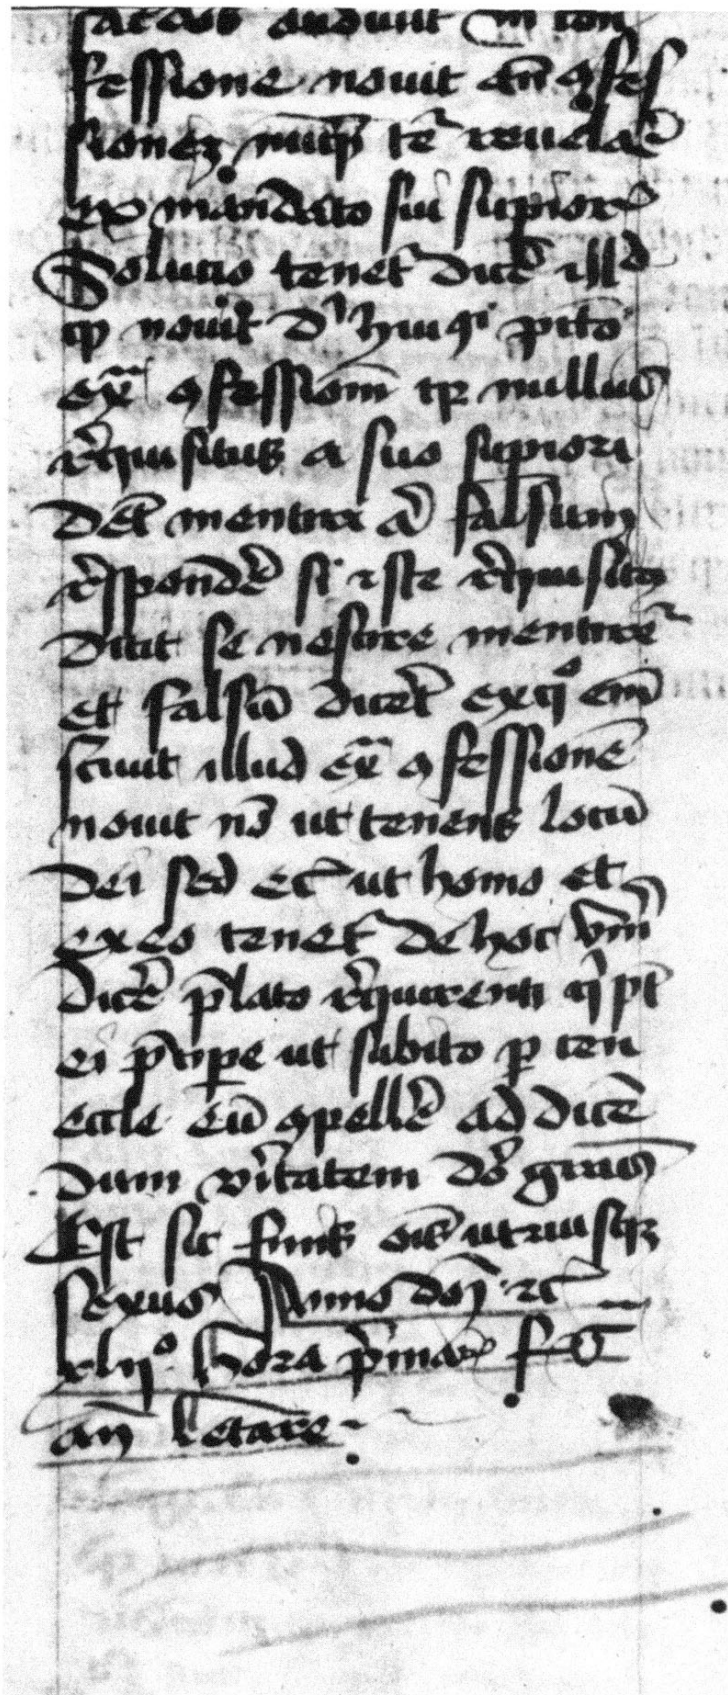 sacdos audiuit in con
fessione nouit an̄ ꝯfes
sionez nūqͥd te᷑ reuelaꝛ̄
ex mandato sui supiorꝭ
Solucio tenet᷑ dicē illd
qp nouit
ex̄ ꝯfessionē qp nullus
reqͥusitus a suo supiori
dꝫ mentiri ⁊ falsum
r̄spondē̄ si iste r̄qͥusitꝰ
dicit se nescire mentire᷑
et falsū diceꝛ̄t exqͦ em̄
sciuit illud ex̄ ꝯfessionē
nouit nō ut tenens locū
dei sed ec̄ ut homo et
ex eo tenet᷑ de hoc vm̄
dicē p̄lato r̄quirenti
ei p̄cipe ut subito p cen
eccle eū ꝯpellē ad dicē
dum v̄itatem dō gr̄as
Est sic finis oīs utriusqꝫ
sexus Anno doī ⁊c
xlijͦ hora p̄ma
an̄ letare